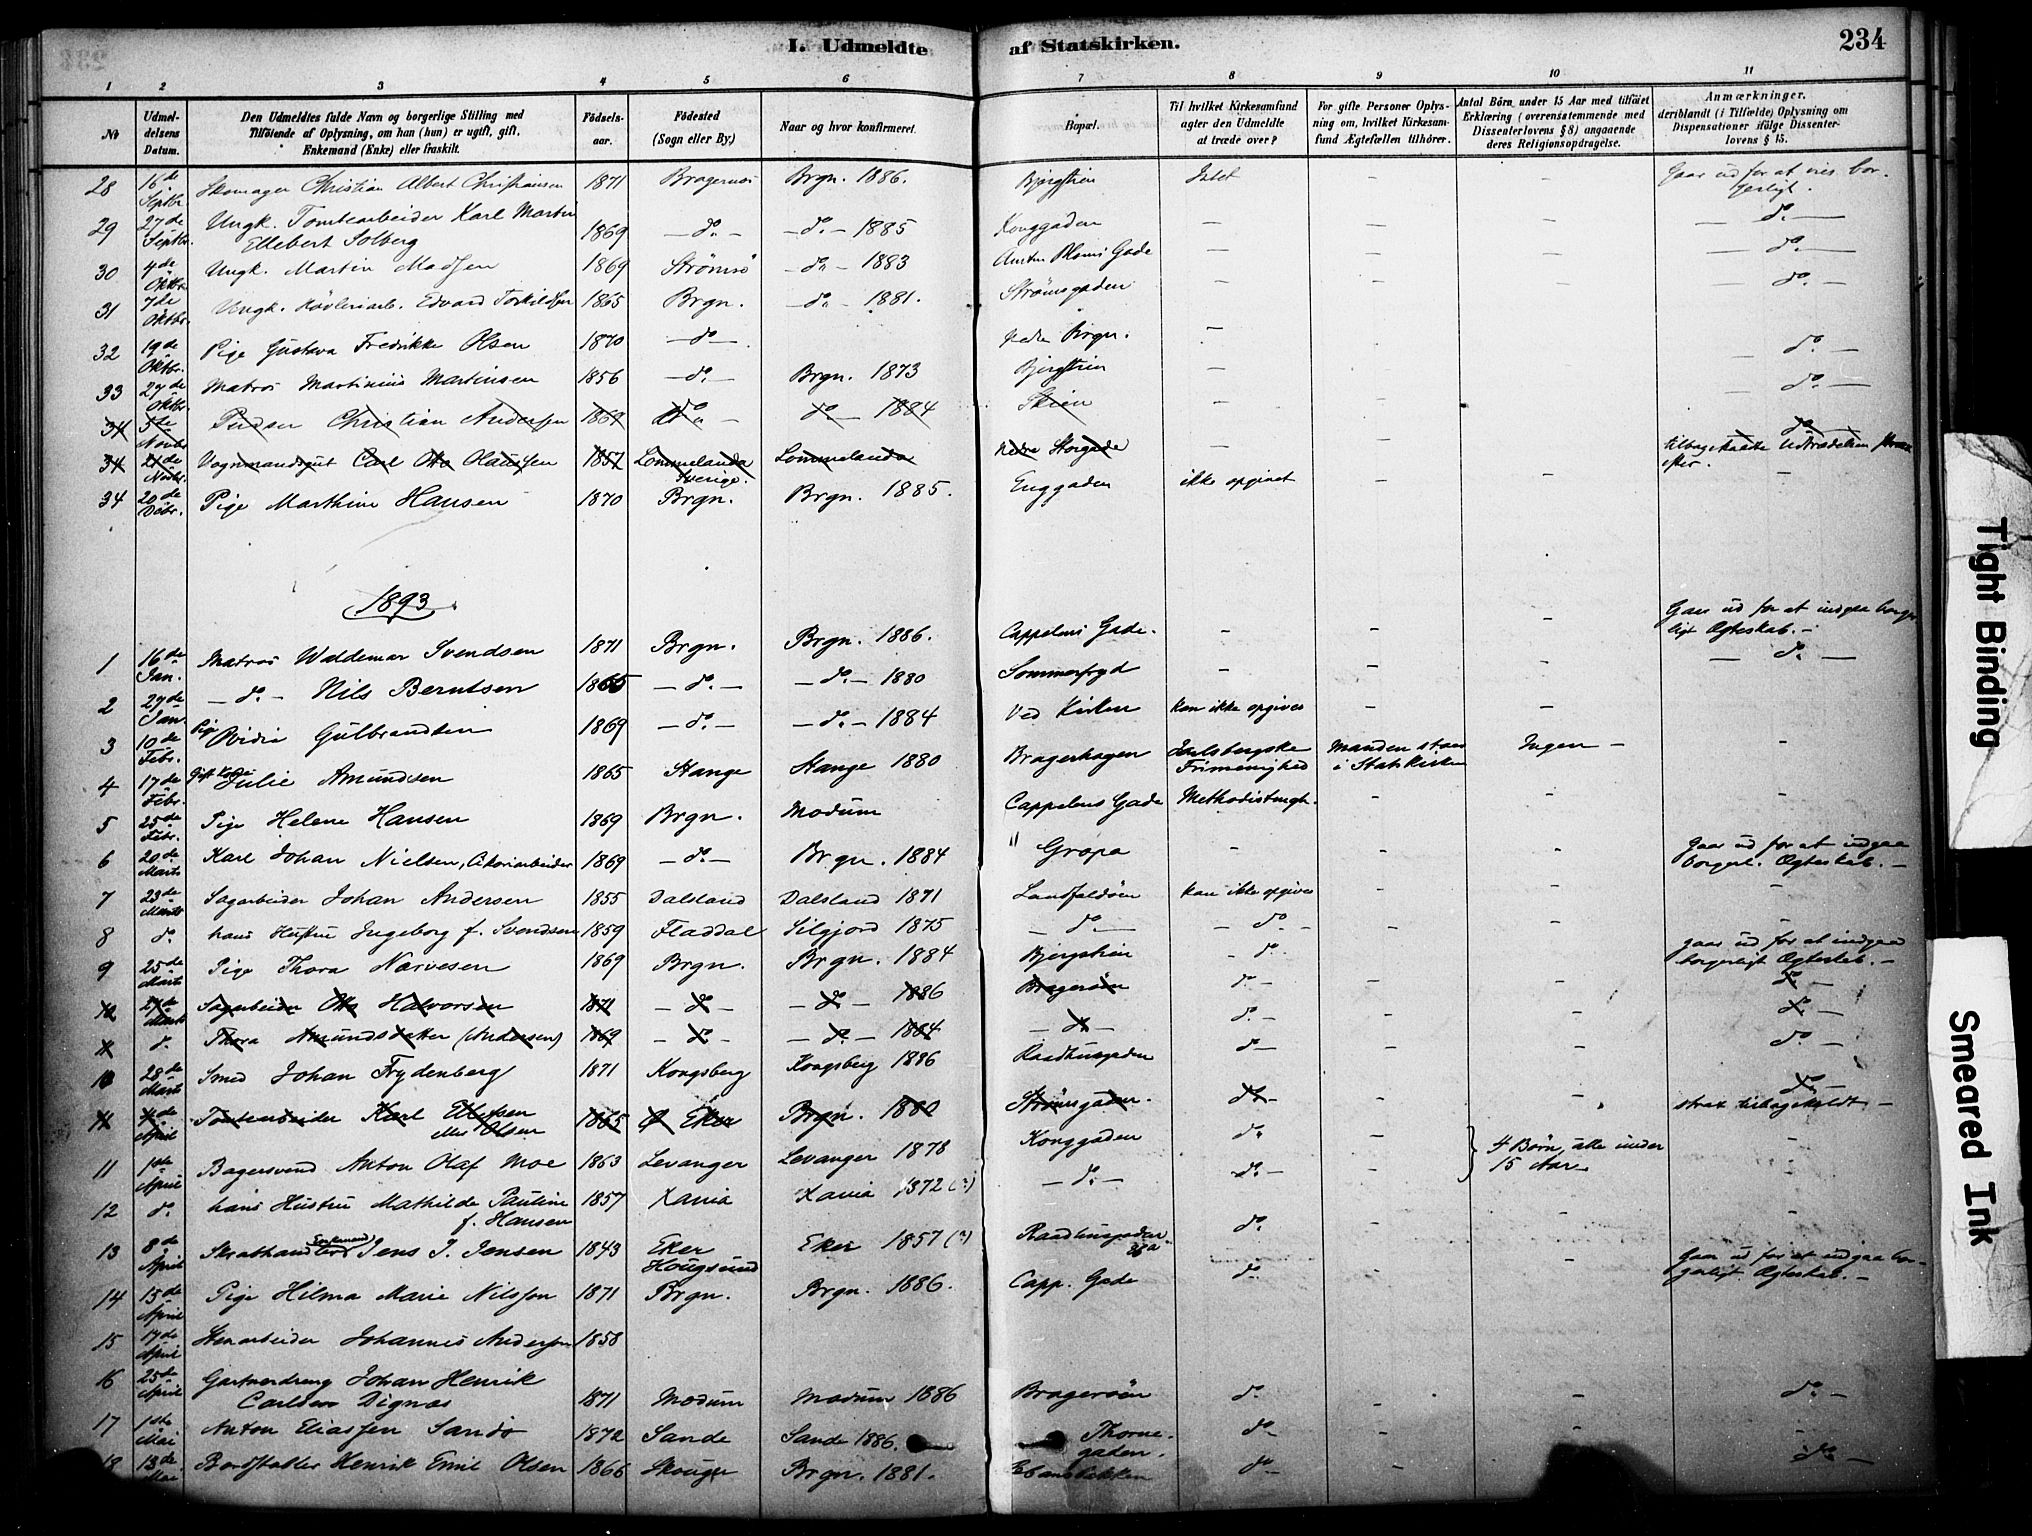 I. Udmeldte af Statskirken. 234
1 2 3 4 5 6 7 8 9 10 11
№ Udmel-delsens Datum. Den Udmeldtes fulde Navn og borgerlige Stilling med Tilföiende af Oplysning, om han (hun) er ugift, gift, Enkemand (Enke) eller fraskilt. Födsels-aar. Födested (Sogn eller By.) Naar og hvor konfirmeret. Bopæl. Til hvilket Kirkesamfund agter den Udmeldte at træde over? For gifte Personer Oplys-ning om, hvilket Kirkesam-fund Ægtefællen tilhörer. Antal Börn under 15 Aar med tilföiet Erklæring (overensstemmende med Dissenterlovens § 8) angaaende deres Religionsopdragelse. Anmærkninger, deriblandt (i Tilfælde) Oplysning om Dispensationer ifölge Dissenter-lovens § 15.
28 16de Septbr. Skomager Christian Albert Christiansen 1871 Bragernes Brgn. 1886. Bjergstien Intet - - Gaar ud for at vies bor-gerligt.
29 27de Septbr. Ungk. Tomtearbeider Karl Martin Ellebert Solberg 1869 - do - - do - 1885 Konggaden - - - do -
30 4de Oktbr. Ungk. Martin Madsen 1869 Strömsö - do - 1883 Gade - - - do -
31 7de Oktbr. Ungk. Edvard Torkildsen 1865 Brgn. - do - 1881. Strömsgaden - - - do -
32 19de Oktbr. Pige Gustava Fredrikke Olsen 1870 - do - Nedre Brgn. - - - do -
33 27de Oktbr. Matros Martinius Martinsen 1856 - do - Brgn. 1873 Bjergstien - - - do -
34 5te Novbr. Christian Andersen 1867 do - do - 1884 Skien - - - do -
34 21de Novbr. Vognmandsgut Carl Otto Olaussen 1857 Lommelanda Sverige. Lommelanda Nedre Storgade - tilbagekaldte Udtrædelsen strax efter.
34 20de Dcbr. Pige Marthine Hansen 1870 Brgn. Brgn. 1885. Enggaden ikke opgivet - - -
1893.
1 16de Jan. Matros Waldemar Svendsen 1871 Brgn. Brgn. 1886. Cappelens Gade. - - - Gaar ud for at indgaa borger-ligt Ægteskab. -
2 27de Jan. - do - Nils Berntsen 1865 - do - - do - 1880 Sommerfryd - - - do -
3 10de Febr. Pige Ovidia Gulbrandsen 1869 - do - - do - 1884 Ved Kirken kan ikke opgives - -
4 17de Febr. Gift Kone Julie Amundsen 1865 Stange Stange 1880 Bragerhagen Jarlsbergske Frimenighed Manden staar i Statskirken Ingen - -
5 25de Febr. Pige Helene Hansen 1869 Brgn. Modum Cappelens Gade Methodistmgh. - - -
6 20de Marts Karl Johan Nielsen, Cikoriarbeider 1869 - do - Brgn. 1884 " Gropa - - - Gaar ud for at indgaa borgerl. Ægteskab. -
7 23de Marts Sagarbeider Johan Andersen 1855 Dalsland Dalsland 1871 Landfaldöen kan ikke opgives - - -
8 do hans Hustru Ingeborg f. Svendsen 1859 Fladdal Silgjord 1875 - do - - do - - - -
9 25de Marts Pige Thora Narvesen 1869 Brgn. Brgn. 1884 Bjergstien - do - - gaar ud for at indgaa borgerligt Ægteskab. -
10 27de Marts Sagarbeider Otto Halvorsen 1871 - do - - do - 1886 Bragerøen do - - - do -
11 do Thora Amundsdatter (Andersen) 1869 - do - - do - 1884 - do - do - - - do -
10 28de Marts Smed Johan Frydenberg 1871 Kongsberg Kongsberg 1886 Raadhusgaden do - - - do -
11 4de April Tomtearbeider Karl Ellefsen Olsen 1865 Ø Eker Brgn. 1880 Strömsgaden. do - - - do strax tilbagekaldt -
11 1ste April Bagersvend Anton Olaf Moe 1863 Levanger Levanger 1878 Konggaden do - 4 Børn, alle under 15 Aar -
12 do hans Hustru Mathilde Pauline f. Hansen 1857 Xania Xania 1872 (?) - do - do - - -
13 8de April Enkemand Jens J. Jensen 1843 Eker Hougsund Eker 1857 (?) Raadhusgaden do - - -
14 15de April Pige Hilma Marie Nilsson 1871 Brgn. Brgn. 1886. Capp. Gade do - - Gaar ud for at indgaa bor-gerligt Ægteskab. -
15 17de April Stenarbeider Johannes Andersson 1858
16 25de April Gartnerdreng Johan Henrik Carlsen Dignæs 1871 Modum Modum 1886 Bragerøen do - - - do -
17 1ste Mai Anton Eliassen Sandö 1872 Sande Sande 1886. Thorne-gaden. do - - - -
18 13de Mai Henrik Emil Olsen 1866 Skouger Brgn. 1881. do - - do -
Tight Binding
Smeared Ink